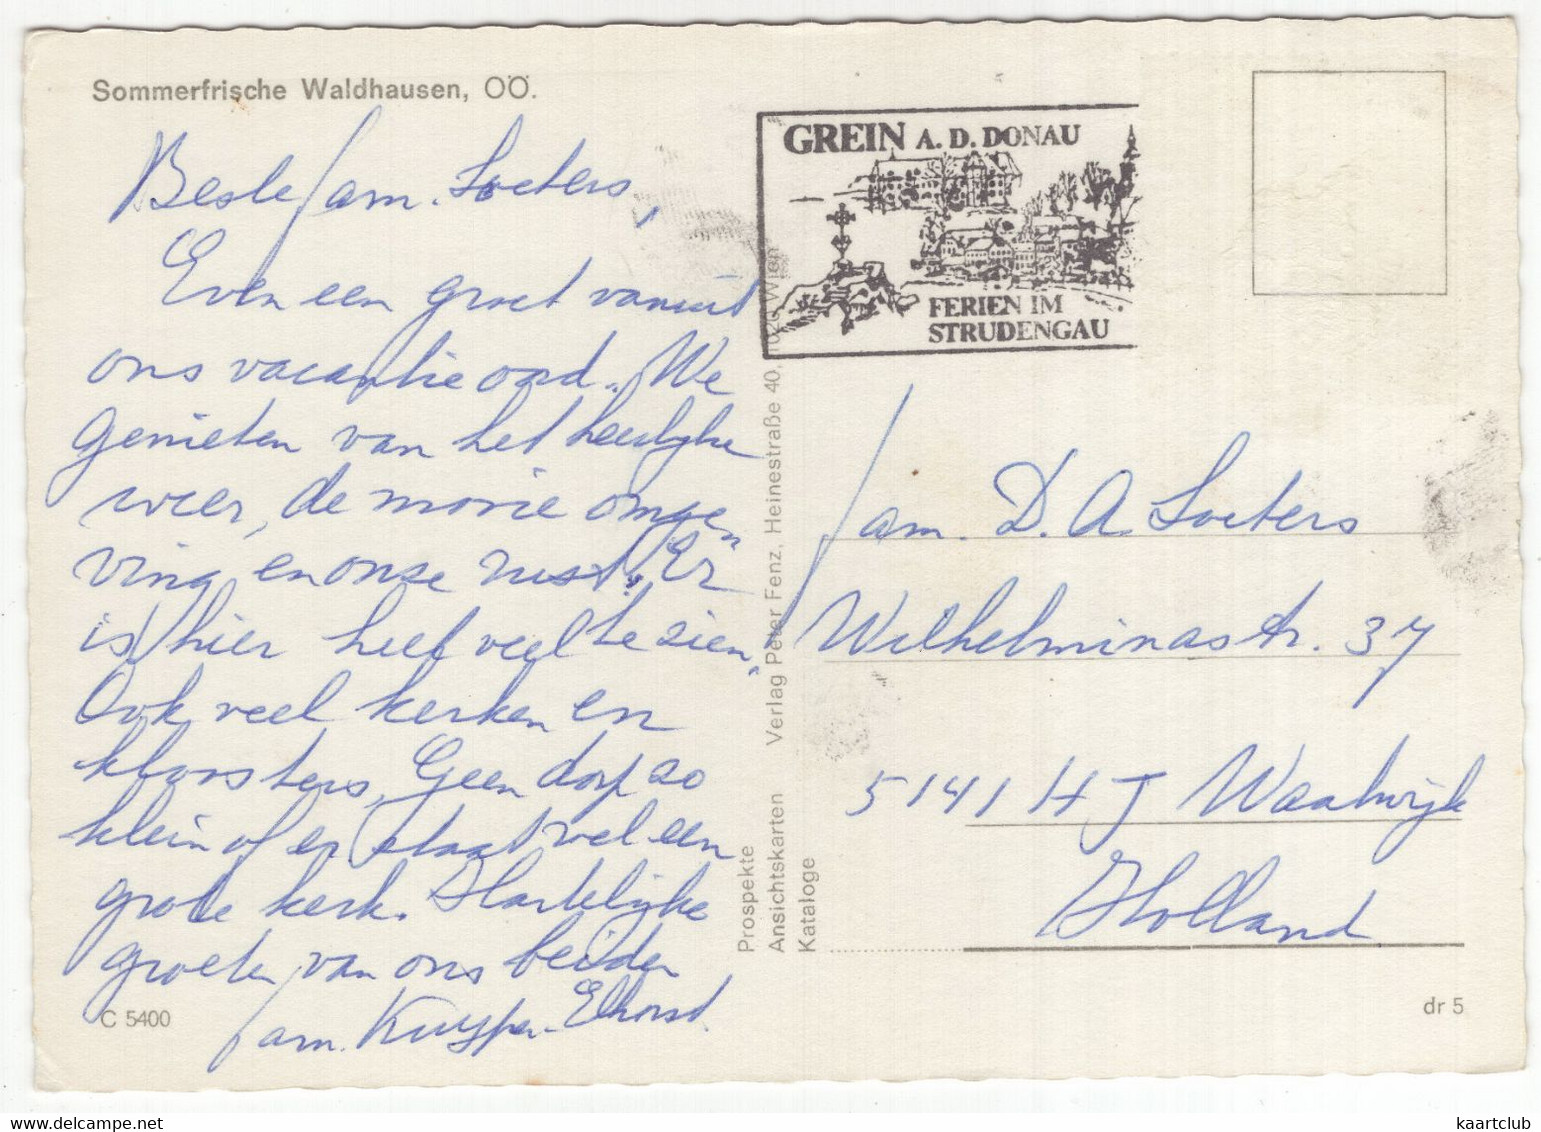 Sommerfrische Waldhausen, OÖ.
Beste fam. Soeters,
Even een groet vanuit
ons vacantie oord. We
genieten van het heerlijke
weer, de mooie omge-
ving en onze rust. Er
is hier heel veel te zien.
Ook veel kerken en
kloosters, Geen dorp zo
klein of er staat wel een
grote kerk. Hartelijke
groeten van ons beiden
fam. Kuyper-Elhorst.
C 5400
GREIN A. D. DONAU
FERIEN IM
STRUDENGAU
Verlag Peter Fenz, Heinestraße 40, 1020 Wien
Prospekte
Ansichtskarten
Kataloge
fam. D. A. Soeters
Wilhelminastr. 37
5141 HJ Waalwijk
Holland
dr 5
kaartclub